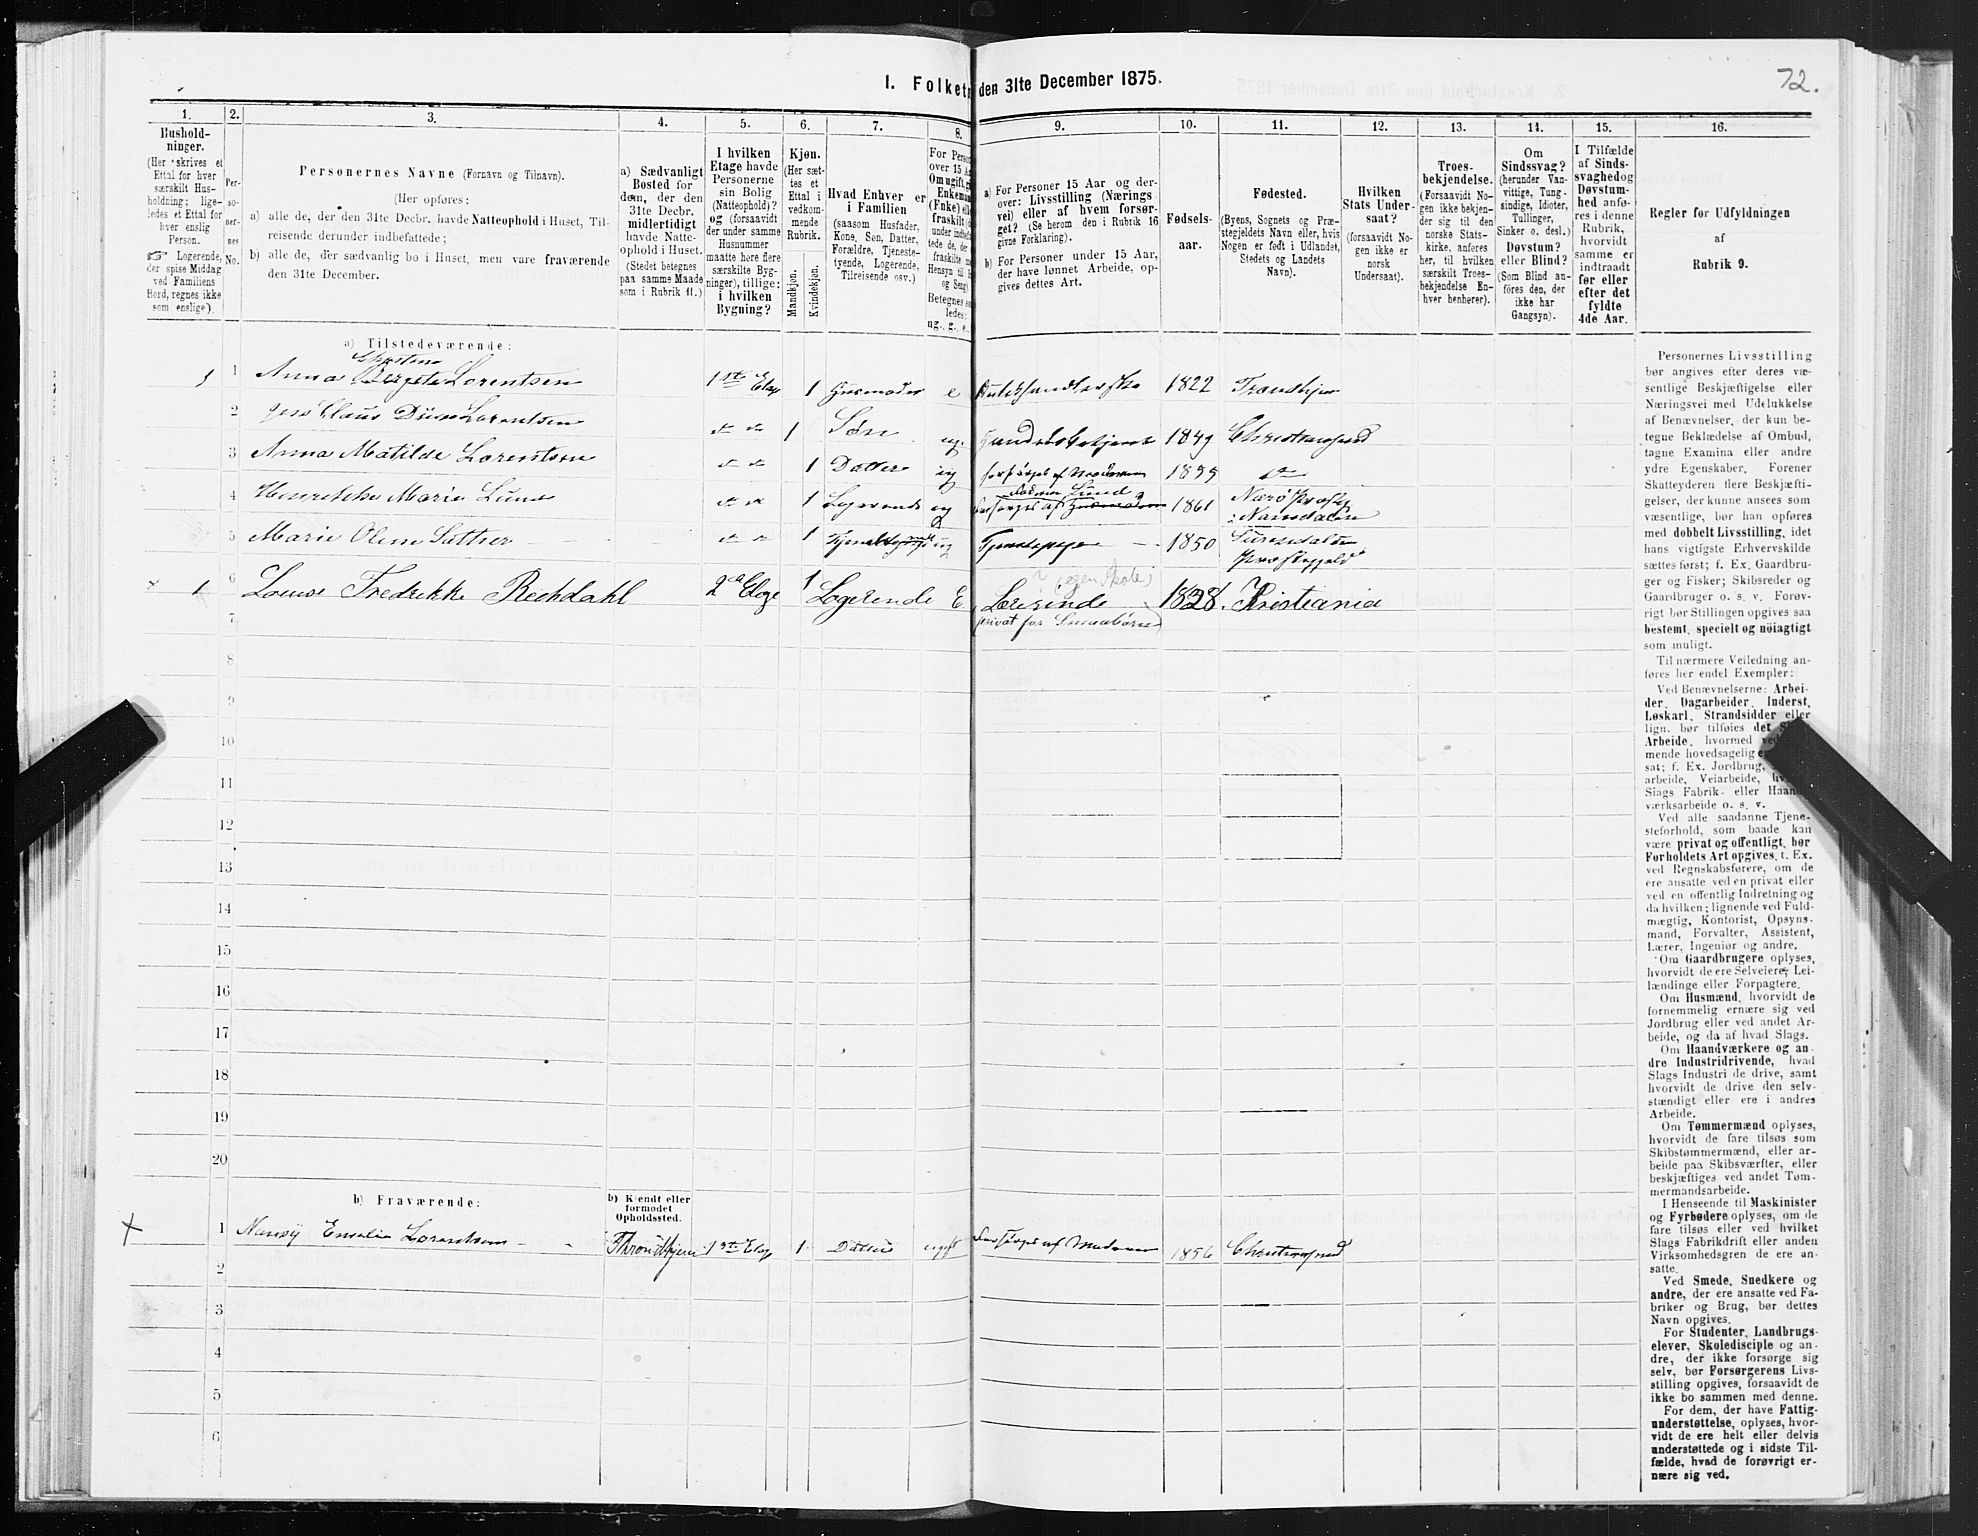 72.
1. Folket den 31te December 1875.
1. 2. 3. 4. 5. 6. 7. 8. 9. 10. 11. 12. 13. 14. 15. 16.
Hushold-
ninger.
(Her skrives et
Ettal for hver
særskilt Hus-
holdning; lige-
ledes et Ettal for
hver enslig
Person.
☞ Logerende,
der spise Middag
ved Familiens
Bord, regnes ikke
som enslige).
Per-
so-
ner-
nes
No.
Personernes Navne (Fornavn og Tilnavn).
(Her opføres:
a) alle de, der den 31te Decbr. havde Natteophold i Huset, Til-
reisende derunder indbefattede;
b) alle de, der sædvanlig bo i Huset, men vare fraværende
den 31te December.
a) Sædvanligt
Bosted for
dem, der den
31te Decbr.
midlertidigt
havde Natte-
ophold i Huset.
(Stedet betegnes
paa samme Maade
som i Rubrik 11.)
I hvilken
Etage havde
Personerne
sin Bolig
(Natteophold)?
og (forsaavidt
der under samme
Husnummer
maatte høre flere
særskilte Byg-
ninger), tillige:
i hvilken
Bygning?
Kjøn.
(Her sæt-
tes et
Ettal i
vedkom-
mende
Rubrik.
Mandkjøn.
Kvindekjøn.
Hvad Enhver er
i Familien
(saasom Husfader,
Kone, Søn, Datter,
Forældre, Tjeneste-
tyende, Logerende,
Tilreisende osv.)
For Perso
over 15 A
Om ugift, g
Enkema
(Enke) el
fraskilt
under indbef
tede de, der
fraskilte m
Hensyn til B
og Seng).
Betegnes s
ledes:
ug., g., e.,
a) For Personer 15 Aar og der-
over: Livsstilling (Nærings
vei) eller af hvem forsør-
get? (Se herom den i Rubrik 16
givne Forklaring).
b) For Personer under 15 Aar,
der have lønnet Arbeide, op-
gives dettes Art.
Fødsels-
aar.
Fødested.
(Byens, Sognets og Præ-
stegjeldets Navn eller, hvis
Nogen er født i Udlandet,
Stedets og Landets
Navn).
Hvilken
Stats Under-
saat?
(forsaavidt No-
gen ikke er
norsk
Undersaat).
Troes-
bekjendelse.
(Forsaavidt No-
gen ikke bekjen-
der sig til den
norske Stats-
kirke, anføres
her, til hvilken
særskilt Troes-
bekjendelse En-
hver henhører).
Om
Sindssvag?
(herunder Van-
vittige, Tung-
sindige, Idioter,
Tullinger,
Sinker o. desl.)
Døvstum?
eller Blind?
(Som Blind an-
føres den, der
ikke har
Gangsyn).
I Tilfælde
af Sinds-
svaghed og
Døvstum-
hed anfø-
res i denne
Rubrik,
hvorvidt
samme er
indtraadt
før eller
efter det
fyldte
4de Aar.
Regler for Udfyldningen
af
Rubrik 9.
a) Tilstedeværende:
Christine
1 1 Anna Lorentsen 1ste Etage 1 Husmoder e 1822 Trondhjem
2 Claus Lorentsen do do 1 Søn ug. 1849 Christiansund
3 Anna Matilde Lorentsen do do 1 Datter ug forsørges af Moderen do
4 Henrikke Marie Lund do do 1 Logerende ug forsørges af 1861 Nærø Præstgj
Namdalen
5 Marie Olsen Sæther do do 1 ug Tjenestepige 1850 Surendalen
Præstegjeld
(egen Skole)
1 6 Louise Fredrikke Rechdahl 2d Etage 1 Logerende E. Lærerinde 1828. Kristiania
(privat for Smaabørn)
7
8
9
10
11
12
13
14
15
16
17
18
19
20
b) Fraværende:
b) Kjendt eller
formodet
Opholdssted.
1 Nancy Emilie Lorentsen Throndhjem 1ste Etage 1 Datter ugift Forsørges af Moderen 1856 Christiansund
2
3
4
5
6
Personernes Livsstilling
bør angives efter deres væ-
sentlige Beskjæftigelse eller
Næringsvei med Udelukkelse
af Benævnelser, der kun be-
tegne Beklædelse af Ombud,
tagne Examina eller andre
ydre Egenskaber. Forener
Skatteyderen flere Beskjæfti-
gelser, der kunne ansees som
væsentlige, bør han opføres
med dobbelt Livsstilling, idet
hans vigtigste Erhvervskilde
sættes først; f. Ex. Gaardbru-
ger og Fisker; Skibsreder og
Gaardbruger o. s. v. Forøv-
rigt bør Stillingen opgives saa
bestemt, specielt og nöiagtigt
som muligt.
Til nærmere Veiledning an-
føres her endel Exempler:
Ved Benævnelserne: Arbei-
der, Dagarbeider, Inderst,
Løskarl, Strandsidder eller
lign. bør tilføies det S
Arbeide, hvormed ve
mende hovedsagelig e
sat; f. Ex. Jordbrug,
arbeide, Veiarbeide, h
Slags Fabrik- eller Haand-
værksarbeide o. s. v.
Ved alle saadanne Tjene-
steforhold, som baade kan
være privat og offentligt, bør
Forholdets Art opgives, t. Ex.
ved Regnskabsførere, om de
ere ansatte ved en privat eller
ved en offentlig Indretning og
da hvilken; lignende ved Fuld-
mægtig, Kontorist, Opsyns-
mand, Forvalter, Assistent,
Lærer, Ingeniør og andre.
Om Gaardbrugere oplyses,
hvorvidt de ere Selveiere, Lei-
lændinge eller Forpagtere.
Om Husmænd, hvorvidt de
fornemmelig ernære sig ved
Jordbrug eller ved andet Ar-
beide, og da af hvad Slags.
Om Haandværkere og an-
dre Industridrivende, hvad
Slags Industri de drive, samt
hvorvidt de drive den selv-
stændigt eller ere i andres
Arbeide.
Om Tømmermænd oplyses,
hvorvidt de fare tilsøs som
Skibstømmermænd, eller ar-
beide paa Skibsværfter, eller
beskjæftiges ved andet Tøm-
mermandsarbeide.
I Henseende til Maskinister
og Fyrbødere oplyses, om de
fare tilsøs eller ved hvilket
Slags Fabrikdrift eller anden
Virksomhedsgren de ere an-
satte.
Ved Smede, Snedkere og
andre, der ere ansatte ved Fa-
briker og Brug, bør dettes
Navn opgives.
For Studenter, Landbrugs-
elever, Skoledisciple og an-
dre, der ikke forsørge sig
selv, bør Forsørgerens Livs-
stilling opgives, forsaavidt de
ikke bo sammen med denne.
For dem, der have Fattig-
understøttelse, oplyses, hvor-
vidt de ere helt eller delvis
understøttede og i sidste Til-
fælde, hvad de forøvrigt er-
nære sig ved.